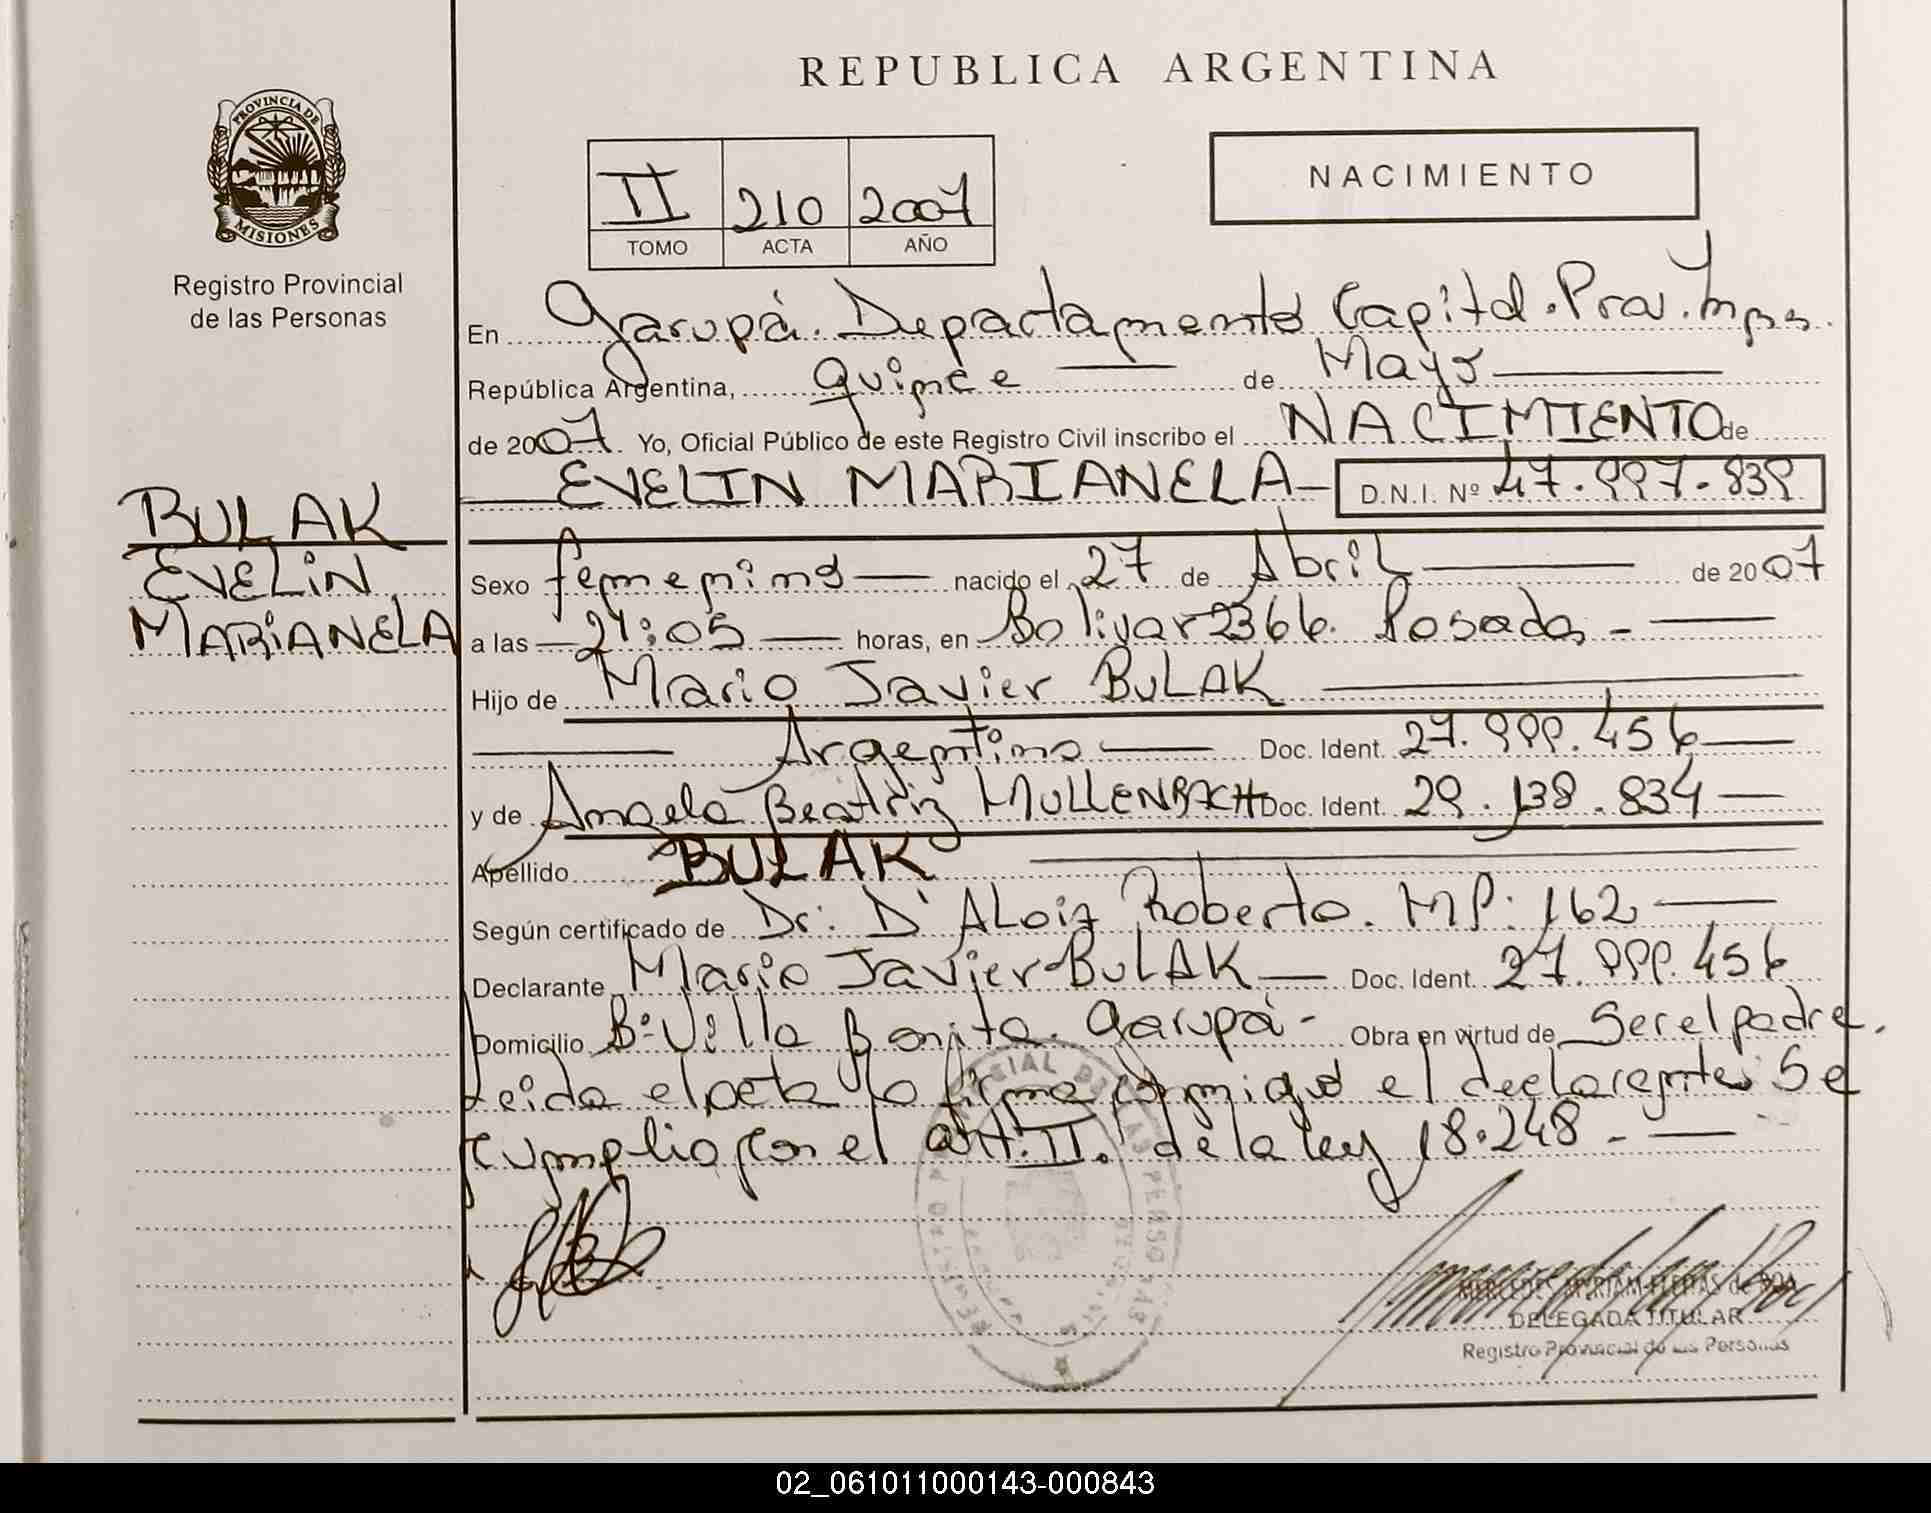 REPUBLICA ARGENTINA
PROVINCIA DE
MISIONES
Registro Provincial
de las Personas
II 210 2007
TOMO ACTA AÑO
NACIMIENTO
En Garupá. Departamento Capital. Prov. Mnes.
República Argentina, Quince de Mayo
de 2007. Yo, Oficial Público de este Registro Civil inscribo el NACIMIENTO de
EVELIN MARIANELA D.N.I. Nº 47.997.839
BULAK
EVELIN
MARIANELA
Sexo femenino nacido el 27 de Abril de 2007
a las 21:05 horas, en Bolivar 2366. Posadas
Hijo de Mario Javier BULAK
Argentino Doc. Ident. 27.999.456
y de Angela Beatriz MULLENBACH Doc. Ident. 29.138.834
Apellido BULAK
Según certificado de Dr: D'ALoiz Roberto. MP: 162
Declarante Mario Javier BULAK Doc. Ident. 27.999.456
Domicilio Bº Villa Bonita. Garupá - Obra en virtud de Ser el padre.
Leida el acta la firma conmigo el declarante. Se
cumplio con el art. II. de la ley 18.248.-
MERCEDES MYRIAM de
DELEGADA TITULAR
Registro Provincial de las Personas
02_061011000143-000843